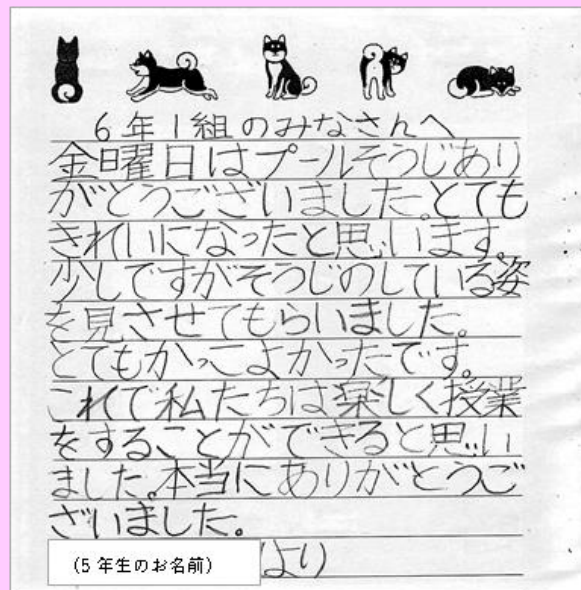 6年1組のみなさんへ
金曜日はプールそうじあり
がとうございました。とても
きれいになったと思います。
少しですがそうじのしている姿
を見させてもらいました。
とてもかっこよかったです。
これで私たちは楽しく授業
をすることができると思い
ました。本当にありがとうご
ざいました。
(5年生のお名前) より